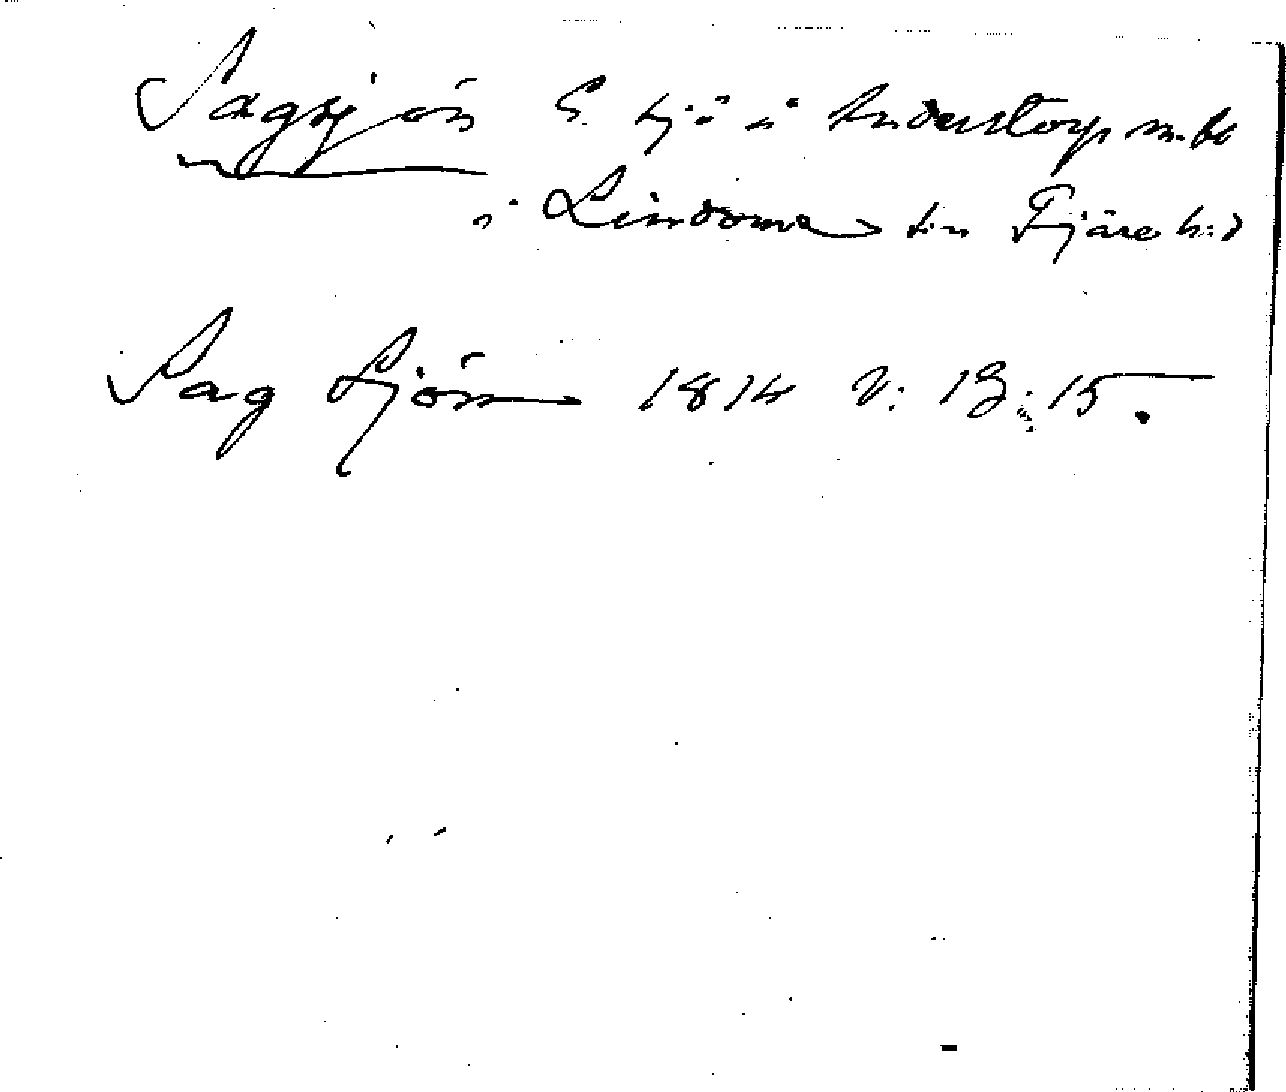 Sagsjön S. sjö i Anderstorp m.fl.
i Lindome sn Fjäre hd
Sag Sjön 1814 V: 13: 15.